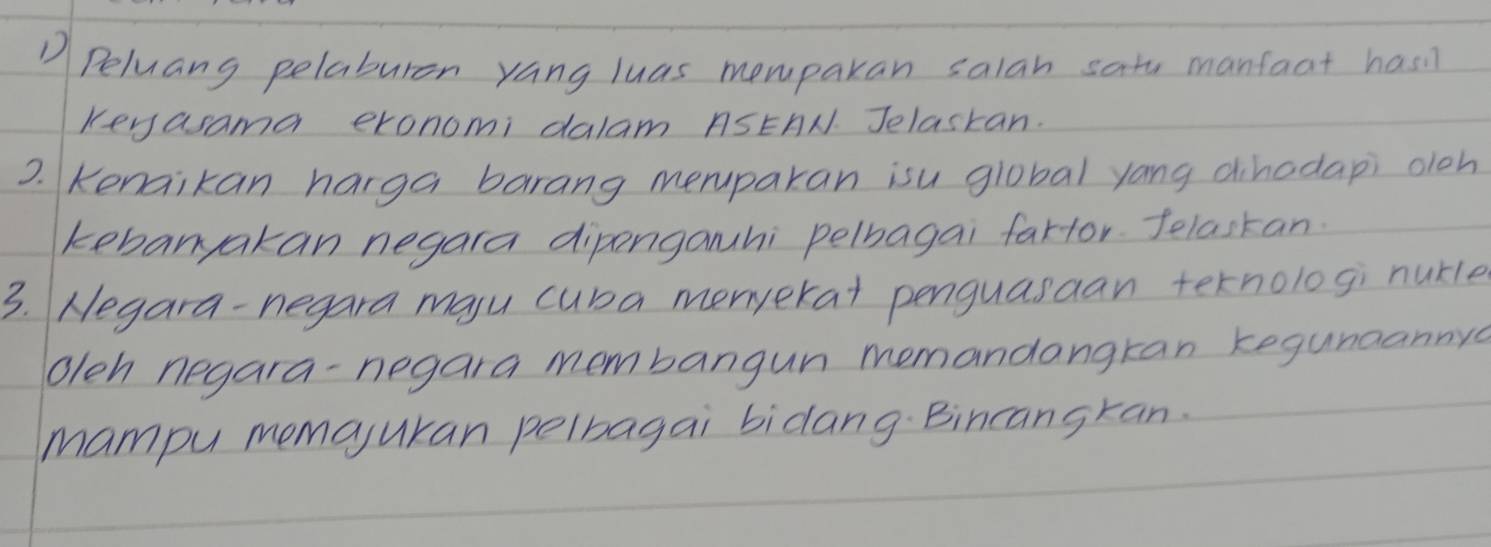 1) Peluang pelaburan yang luas merupakan salah satu manfaat hasil
kerjasama ekonomi dalam ASEAN. Jelaskan.
2. Kenaikan harga barang merupakan isu global yang dihadapi oleh
kebanyakan negara dipengaruhi pelbagai faktor. Jelaskan.
3. Negara-negara maju cuba menyekat penguasaan teknologi nukle
oleh negara-negara membangun memandangkan kegunaannya
mampu memajukan pelbagai bidang. Bincangkan.